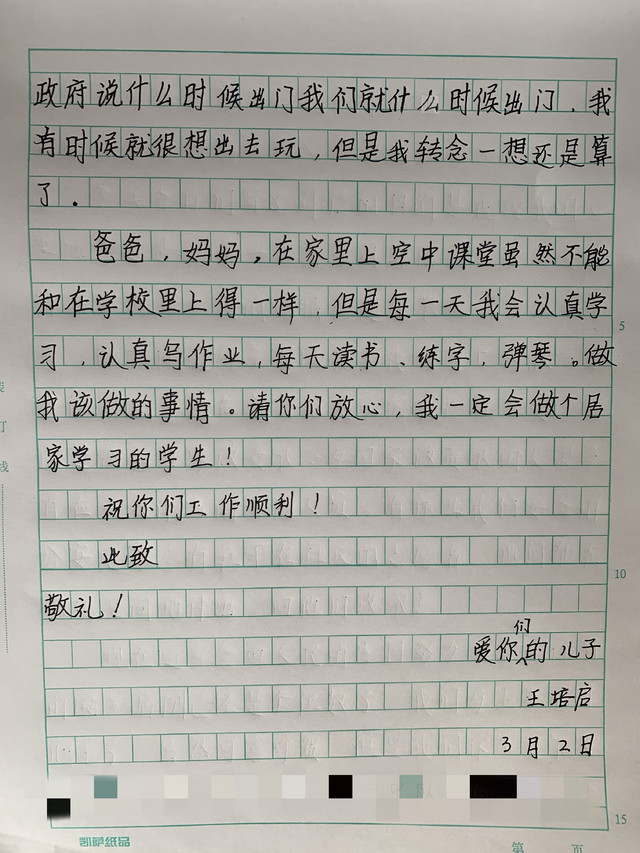 政府说什么时候出门我们就什么时候出门．我
有时候就很想出去玩，但是我转念一想还是算
了．
爸爸，妈妈，在家里上空中课堂虽然不能
和在学校里上得一样，但是每一天我会认真学
5
习，认真写作业，每天读书、练字，弹琴。做
我该做的事情。请你们放心，我一定会做个居
家学习的学生！
祝你们工作顺利！
此致
10
敬礼！
爱你们的儿子
王培启
3月2日
15
凯萨纸品
第 页
订
线